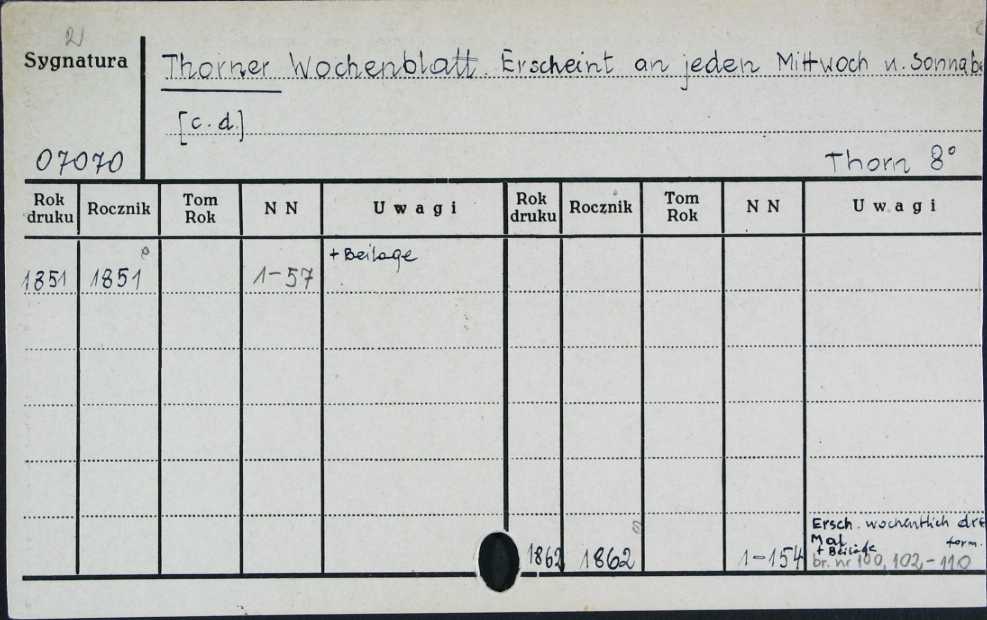 Sygnatura
Thorner Wochenblatt. Erscheint an jeden Mittwoch u. Sonnabe
[c.d.]
07070
Thorn 8°
Rok druku Rocznik Tom Rok N N Uwagi Rok druku Rocznik Tom Rok N N Uwagi
1851 1851 1-57 + Beilage
Ersch. wochentlich dre
Mal form.
+ Beilage
1862 1862 1-154 br. nr 100, 102-110